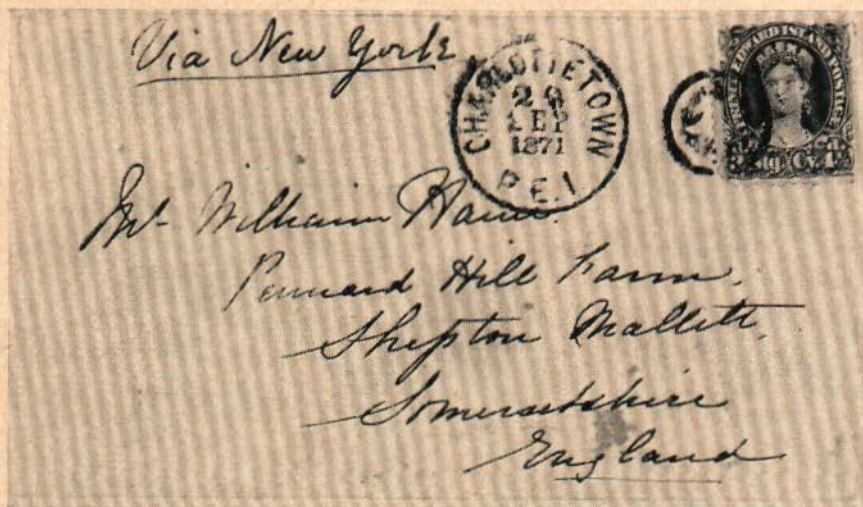 Via New York
CHARLOTTETOWN
SEP
1871
P.E.I.
EDWARD ISLAND POSTAGE
Mr. William
Pennard Hill Farm.
Shepton Mallett.
Somersetshire
England